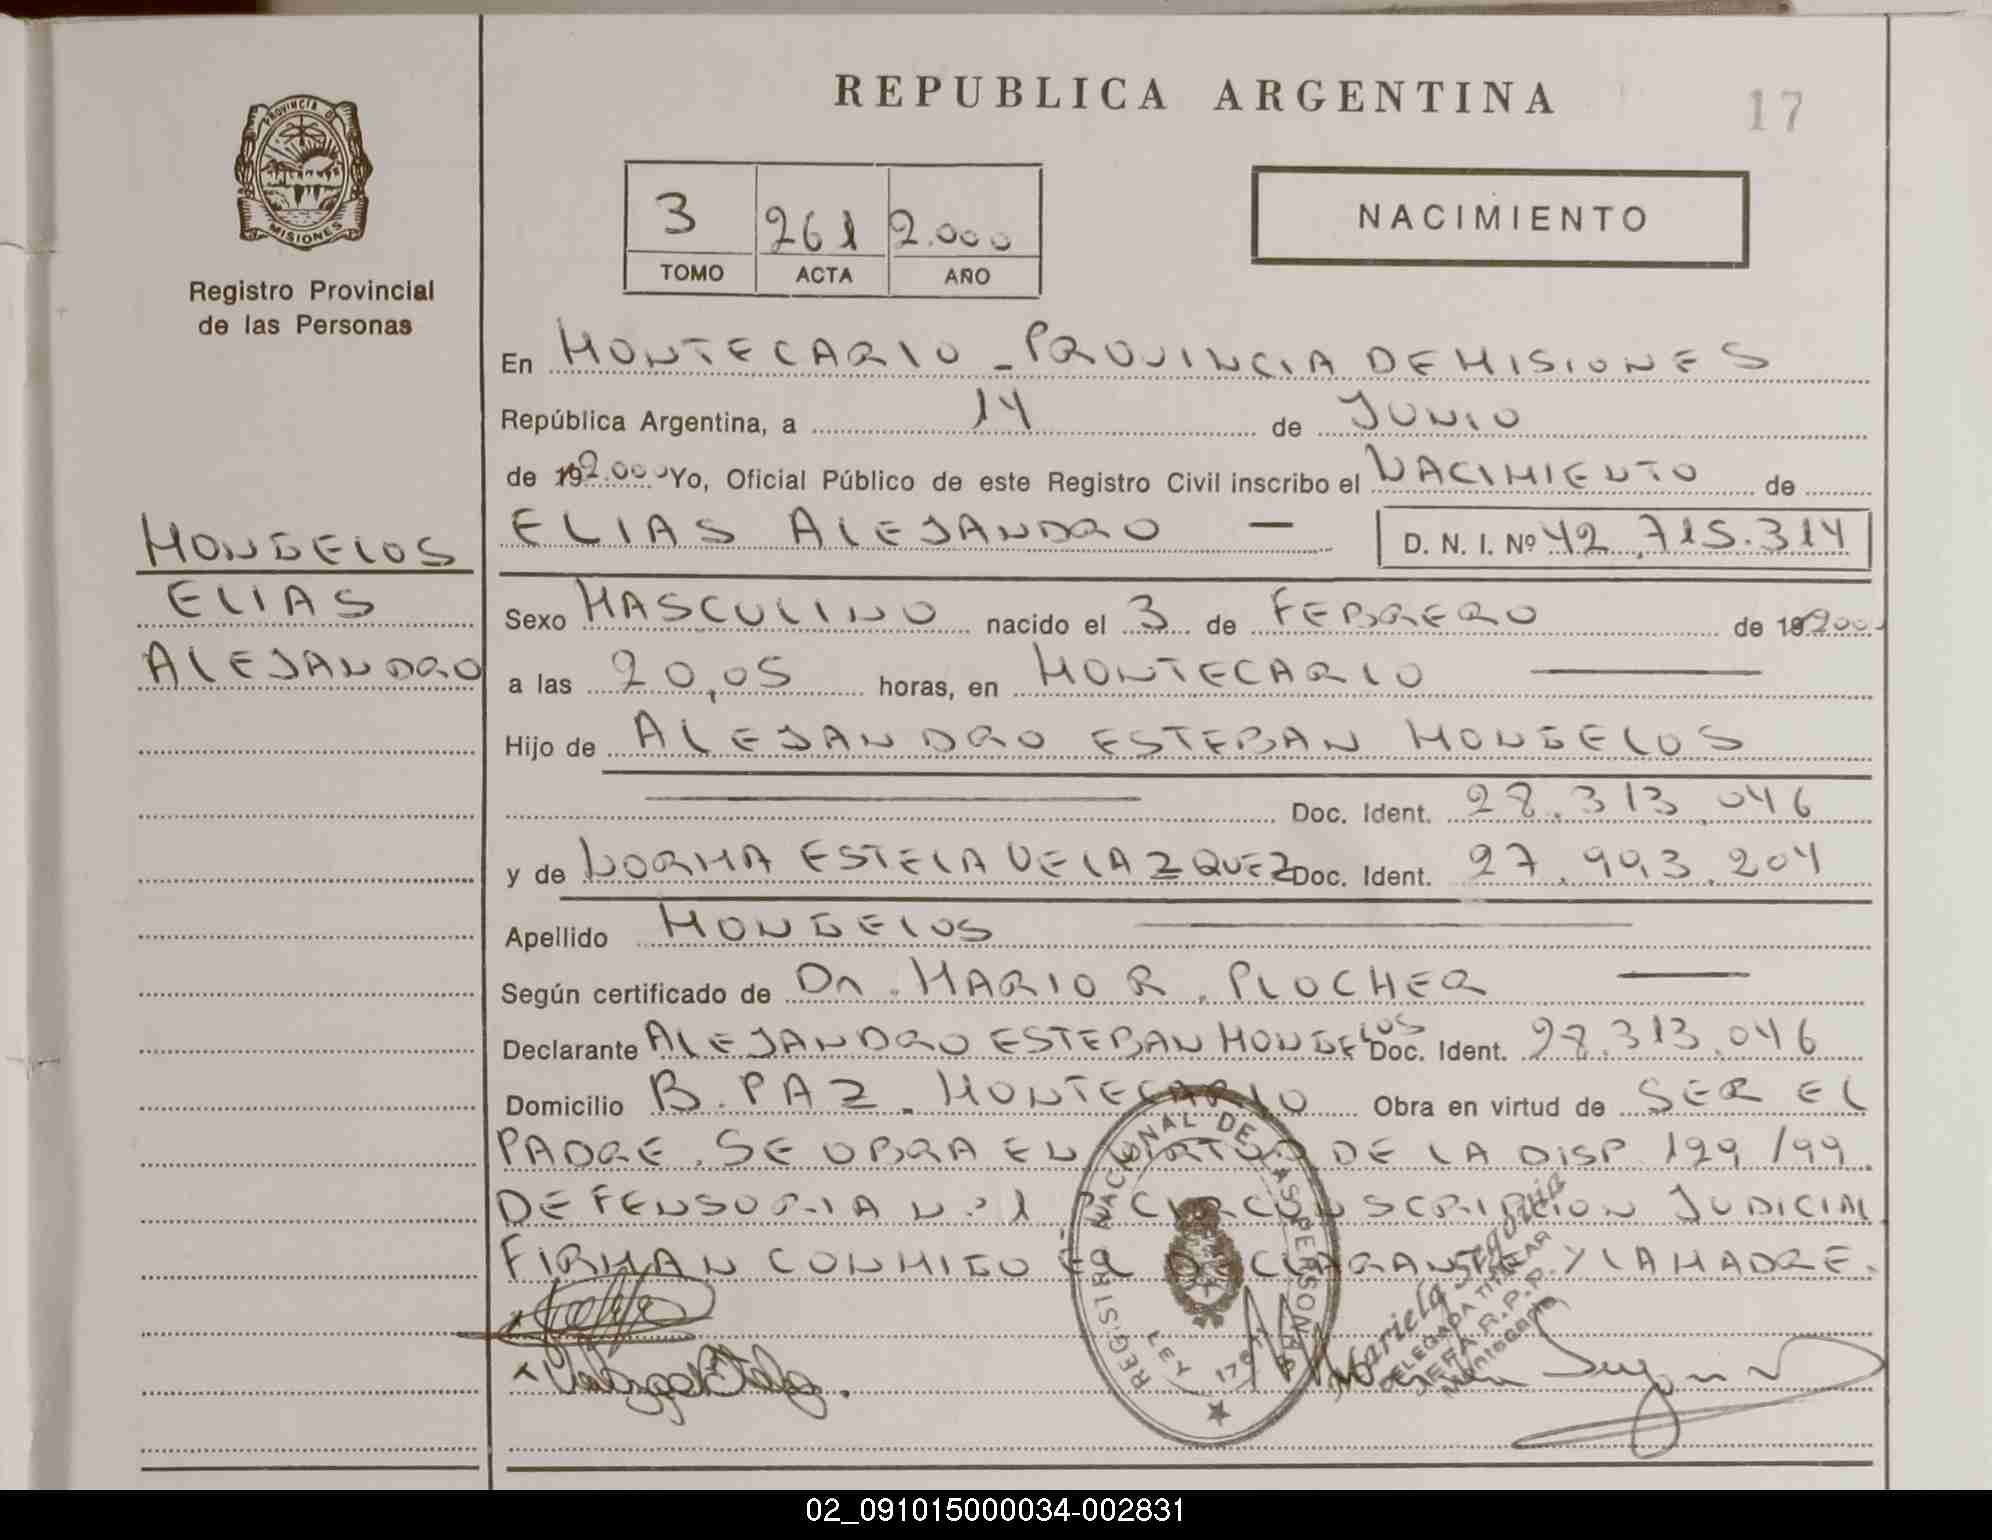 REPUBLICA ARGENTINA
17
PROVINCIA D
MISIONES
Registro Provincial
de las Personas
3 261 2.000
TOMO ACTA AÑO
NACIMIENTO
En MONTECARLO - PROVINCIA DE MISIONES
República Argentina, a 14 de JUNIO
de 192.000 Yo, Oficial Público de este Registro Civil inscribo el NACIMIENTO de
ELIAS ALEJANDRO — D. N. I. Nº 42.715.314
MONGELOS
ELIAS
ALEJANDRO
Sexo MASCULINO nacido el 3 de FEBRERO de 192000
a las 20,05 horas, en MONTECARLO
Hijo de ALEJANDRO ESTEBAN MONGELOS
Doc. Ident. 28.313.046
y de NORMA ESTELA VELAZQUEZ Doc. Ident. 27.993.204
Apellido MONGELOS
Según certificado de Dr. MARIO R. PLOCHER
Declarante ALEJANDRO ESTEBAN MONGELOS Doc. Ident. 28.313.046
Domicilio B. PAZ - MONTECARLO Obra en virtud de SER EL
PADRE. SE OBRA EN VIRTUD DE LA DISP 129/99
DEFENSORIA Nº 1 CIRCUNSCRIPCION JUDICIAL
FIRMAN CONMIGO EL DECLARANTE Y LA MADRE.
REGISTRO NACIONAL DE LAS PERSONAS
LEY
Mariela Segovia
DELEGADA TITULAR
JEFA R.P.P.
Montecarlo
02_091015000034-002831